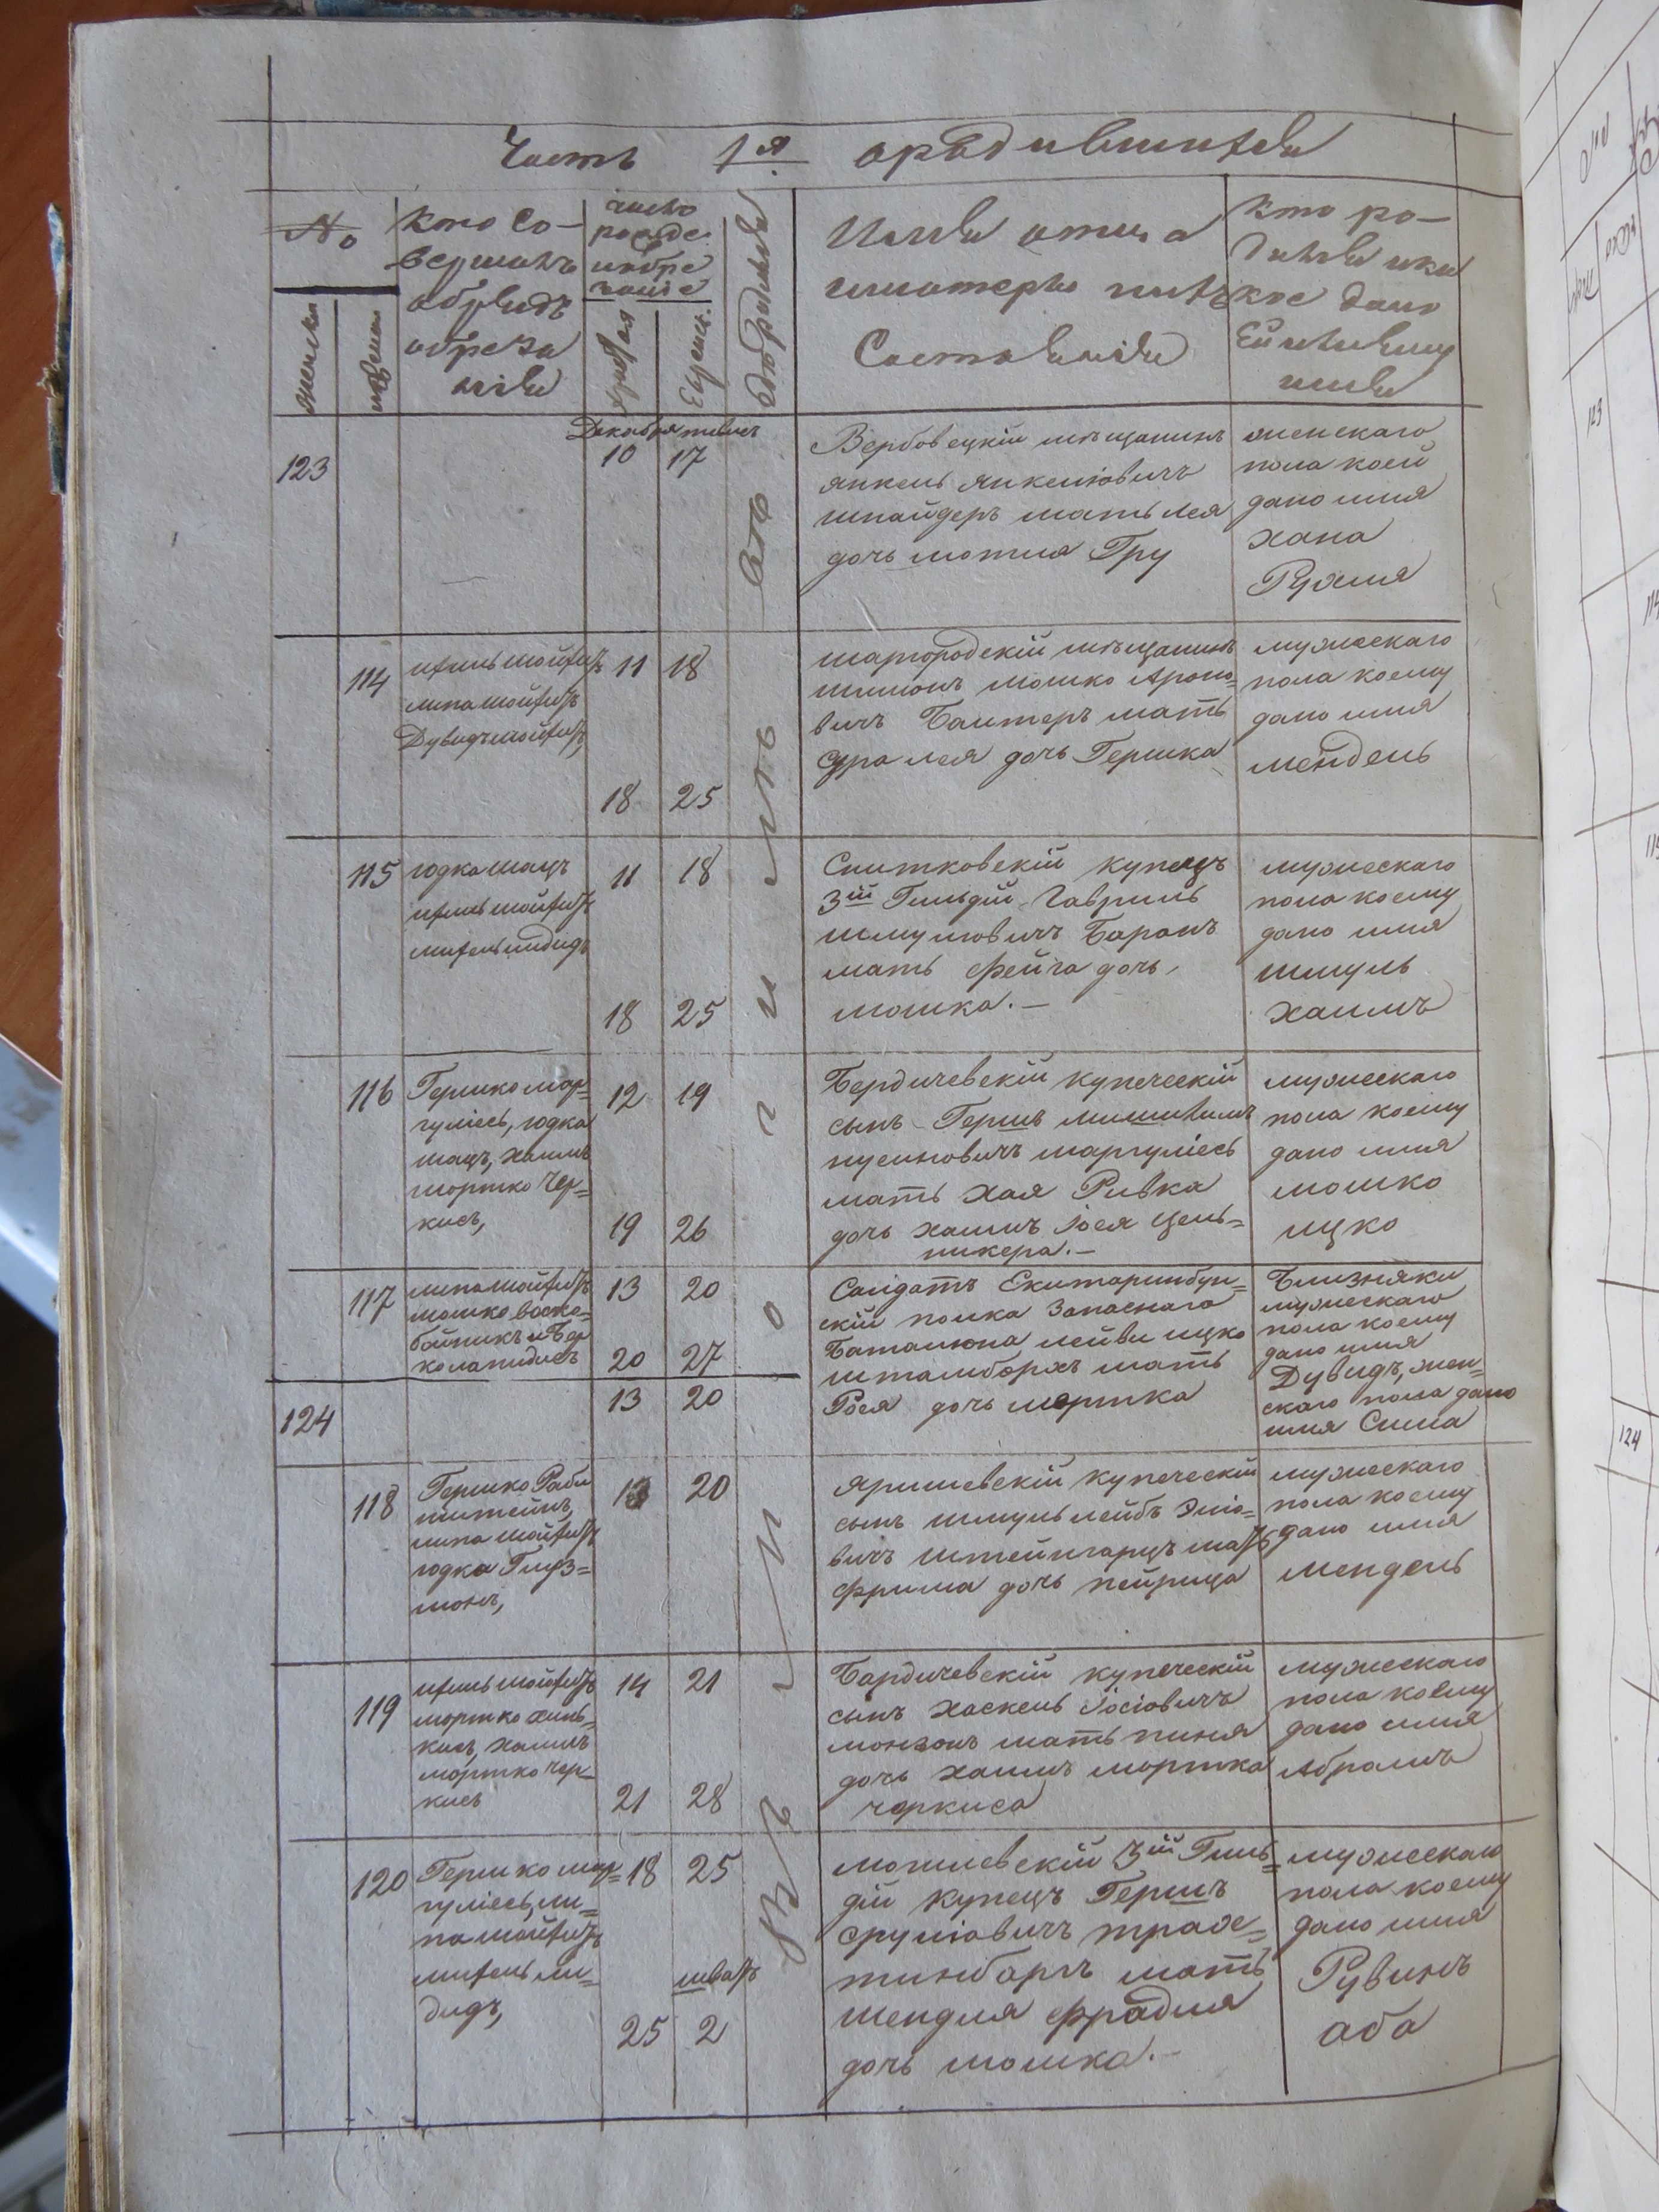 Часть 1я о родившихся
№
женска
мужеска
кто со-
вершалъ
обрядъ
обреза
нія
число
рожде
иобре
заніе
христ.
Еврейск.
гдѣ родился
Имя отца
иматери ихъ
Состоянія
кто ро-
дился и ка
кое дано
Ей или ему
имя
Декабря тевисъ
123
10 17
Вербовецкій мѣщанинъ
янкель янкеліовичъ
шнайдеръ мать лея
дочь мотия Гру
женскаго
пола коей
дано имя
хана
Рухля
114
липа мойфис
Дувидъ мойфис
11 18
18 25
шаргородскій мѣщанинъ
шимонъ мошко Ароно=
вичъ Балтеръ мать
сура лея дочь Гершка
мужескаго
пола коему
дано имя
мендель
115
юдка шацъ
11 18
18 25
Снитковскій купецъ
3ій Гильдіи Гавриль
шмуліовичъ Баранъ
мать фейга дочь
мошка.—
мужескаго
пола коему
дано имя
шмуль
хаимъ
116
Гершко мар=
гуліесъ, юдка
шацъ, хаимъ
мортко Чер=
кисъ,
12 19
19 26
Бердичевскій купеческій
сынъ Гершъ
нусиновичъ маргуліесъ
мать хая Ривка
дочь хаимъ Іося Цель=
никера.—
мужескаго
пола коему
дано имя
мошко
ицко
117
мошко воско=
бойникъ и Бер
ко
13 20
20 27
Салдатъ Екитаринбур=
скій полка Запаснаго
Баталіона лейви ицко
штамборхъ мать
Рося дочь мортка
Близняки
мужескаго
пола коему
дано имя
Дувидъ, жен=
скаго пола дано
имя Сима
124
13 20
118
Гершко Раби
нштейнъ,
липа
юдка Глуз=
манъ,
13 20
яришевскій купеческій
сынъ шмуль лейбъ Эліо=
вичъ штейнгарцъ мать
фрима дочь пейрица
мужескаго
пола коему
дано имя
мендель
119
мортко хиль=
кисъ, хаимъ
мортко чер=
кисъ
14 21
21 28
Бардичевскій купеческій
сынъ хаскель Іосіовичъ
монзонъ мать пиня
дочь хаимъ мортка
чоркиса
мужескаго
пола коему
дано имя
Абрамъ
120
Гершко мар=
гуліесъ, ли=
па
дидъ,
18 25
шватъ
25 2
могилевскій 3ій Гиль=
діи купецъ Гершъ
сруліовичъ трах=
тинбаргъ мать
шендля фрадля
дочь мошка.—
мужескаго
пола коему
дано имя
Рувинъ
аба
въ Могилевѣ
123
114
115
124